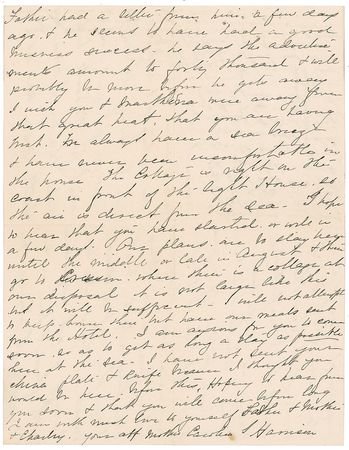 Father had a letter from him, a few days
ago. & he seems to have had a good
business success. he says the advertise
ments amount to forty thousand & will
probably be more before he gets away
I wish you & Marthena were away from
that great heat, that you are having
We always have a sea breeze
& have never been uncomfortable in
the house The Cottage is right on the
coast in front of the Light House. so
the air is direct from the sea- I hope
to hear that you have started. or will in
a few days. Our plans. are to stay here
until the middle or late in August & then
go to where there is a cottage at
our disposal it is not large like this
but it will be sufficient- I will not attempt
to keep house there but have our meals sent
from the Hotel. I am anxious for you to come
soon. so as to get as long a stay as possible
here at the sea. I have not sent your
china plate & knife because I thought you
would be here before this, Hoping to hear from
you soon & that you will come before long
I am with much love to yourself Father & Mother
& Your aff Mother Caroline S Harrison